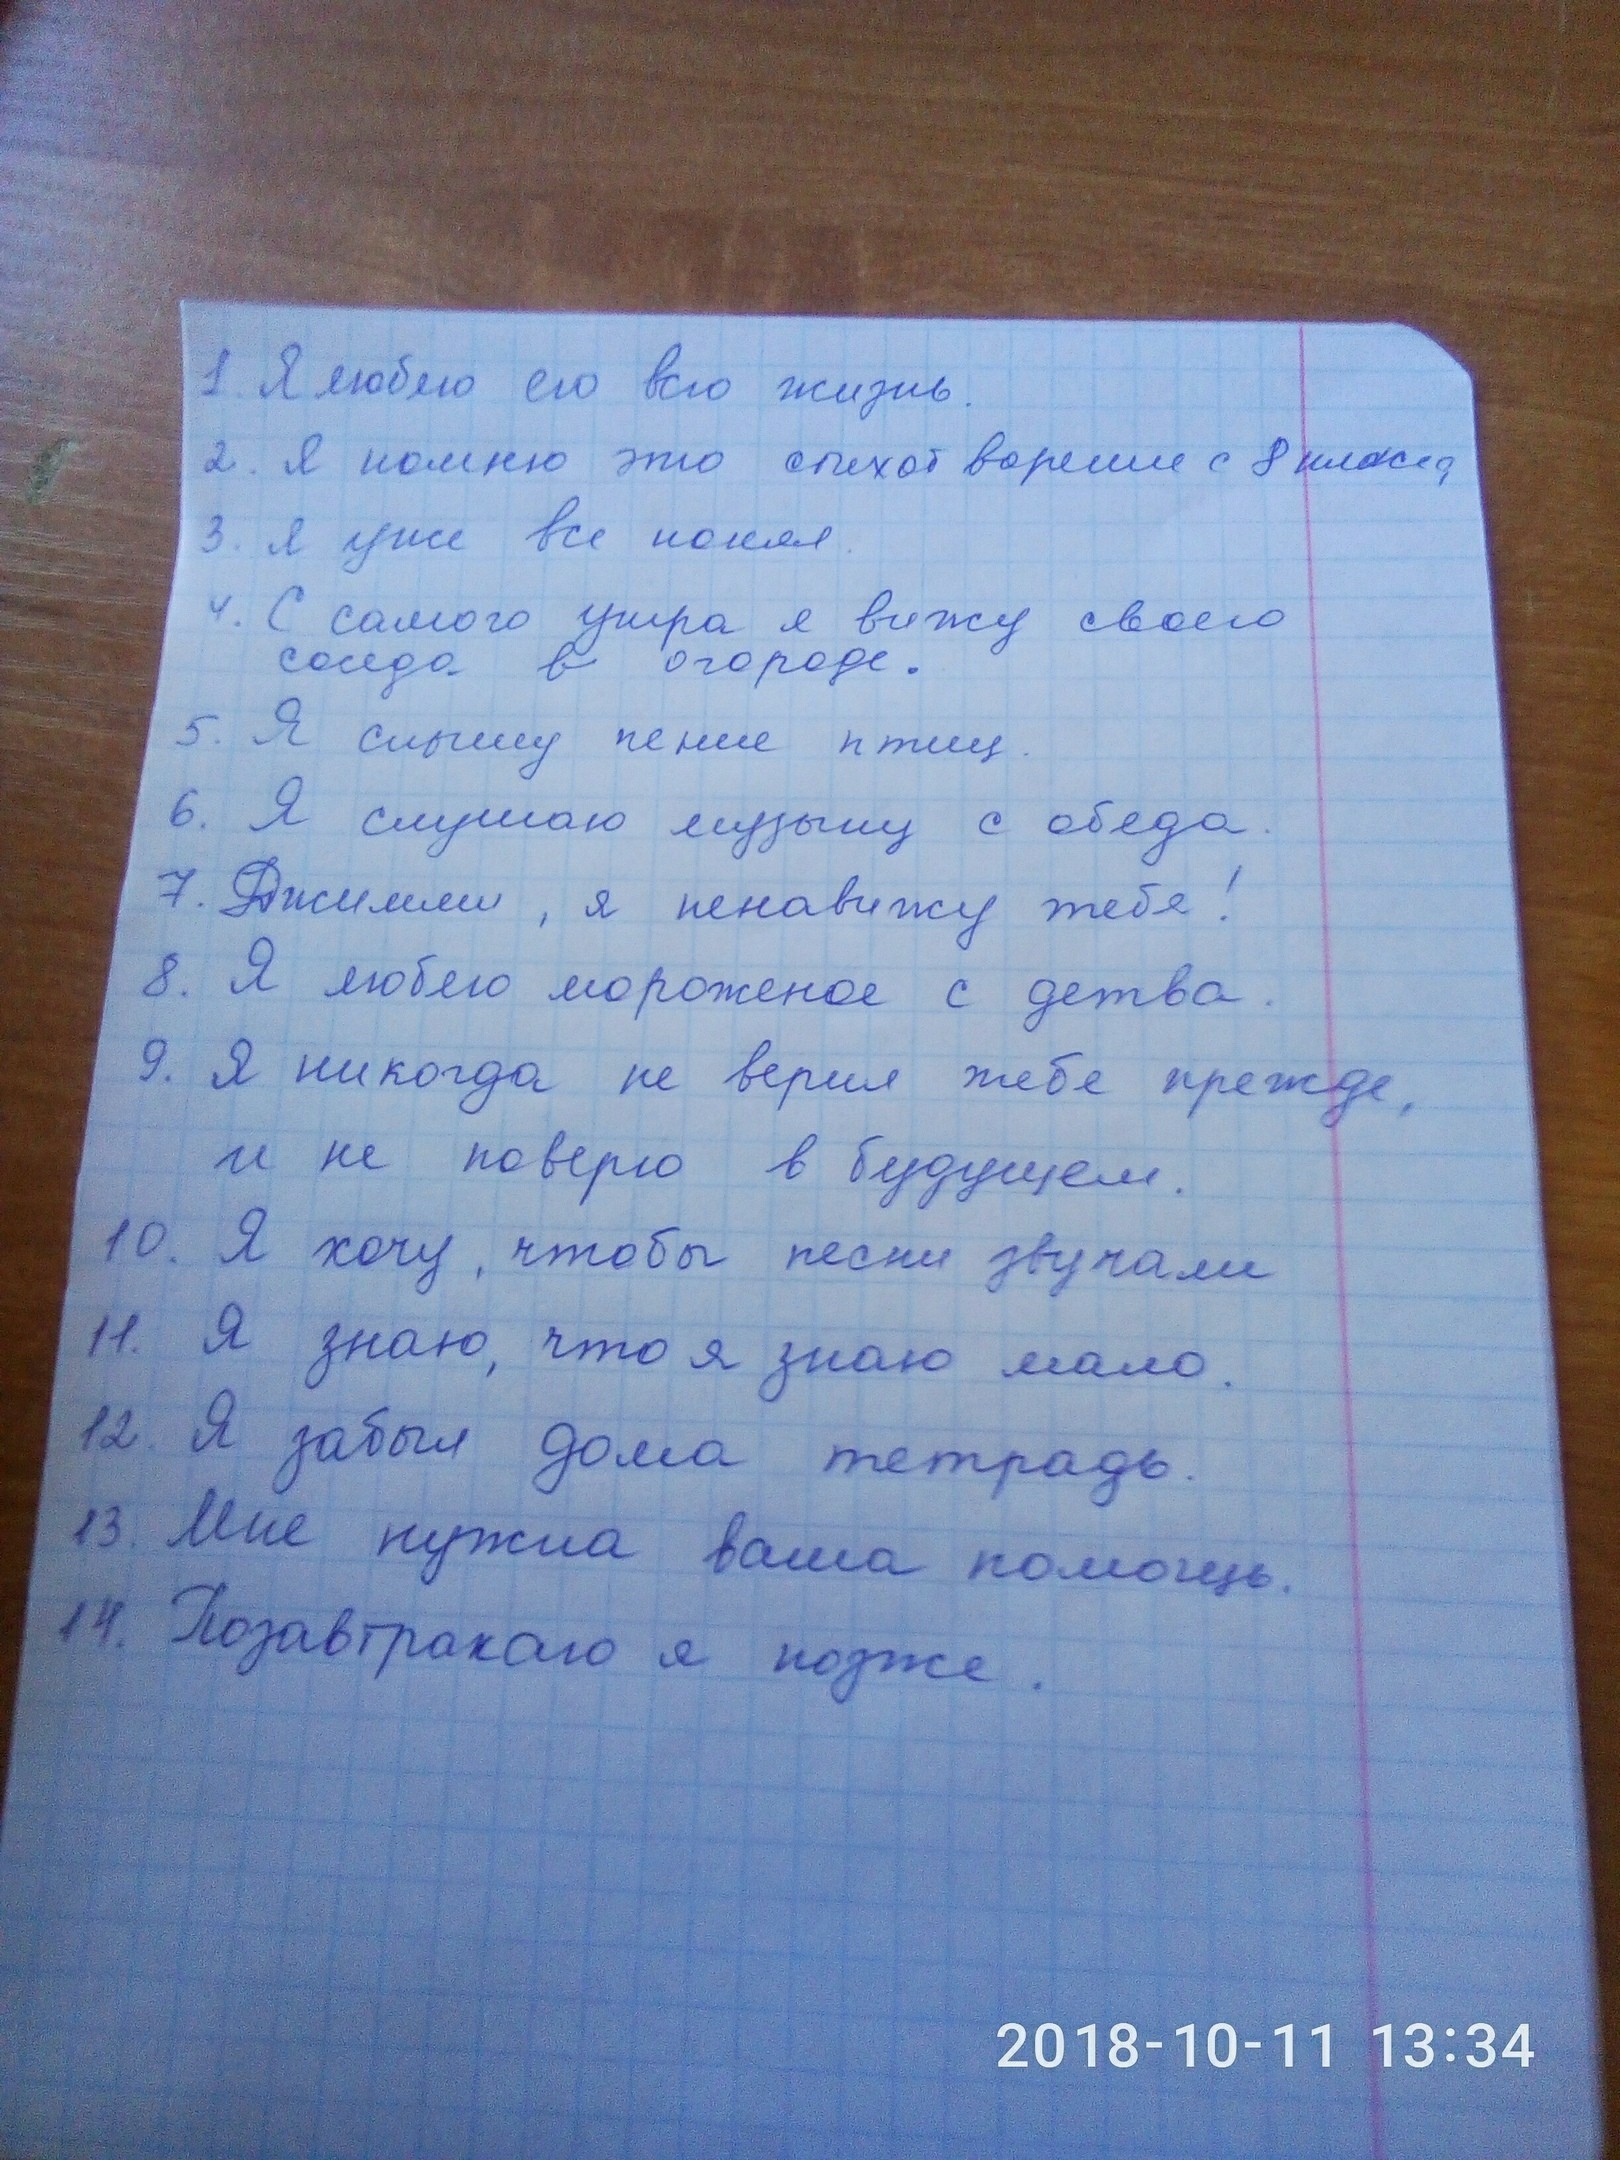 1. Я люблю его всю жизнь.
2. Я помню это стихотворение с 8 класса,
3. Я уже все понял.
4. С самого утра я вижу своего
соседа в огороде.
5. Я слышу пение птиц.
6. Я слушаю музыку с обеда.
7. Джимми, я ненавижу тебя!
8. Я люблю мороженое с детва.
9. Я никогда не верил тебе прежде,
и не поверю в будущем.
10. Я хочу, чтобы песни звучали
11. Я знаю, что я знаю мало.
12. Я забыл дома тетрадь.
13. Мне нужна ваша помощь.
14. Позавтракаю я позже.
2018-10-11 13:34